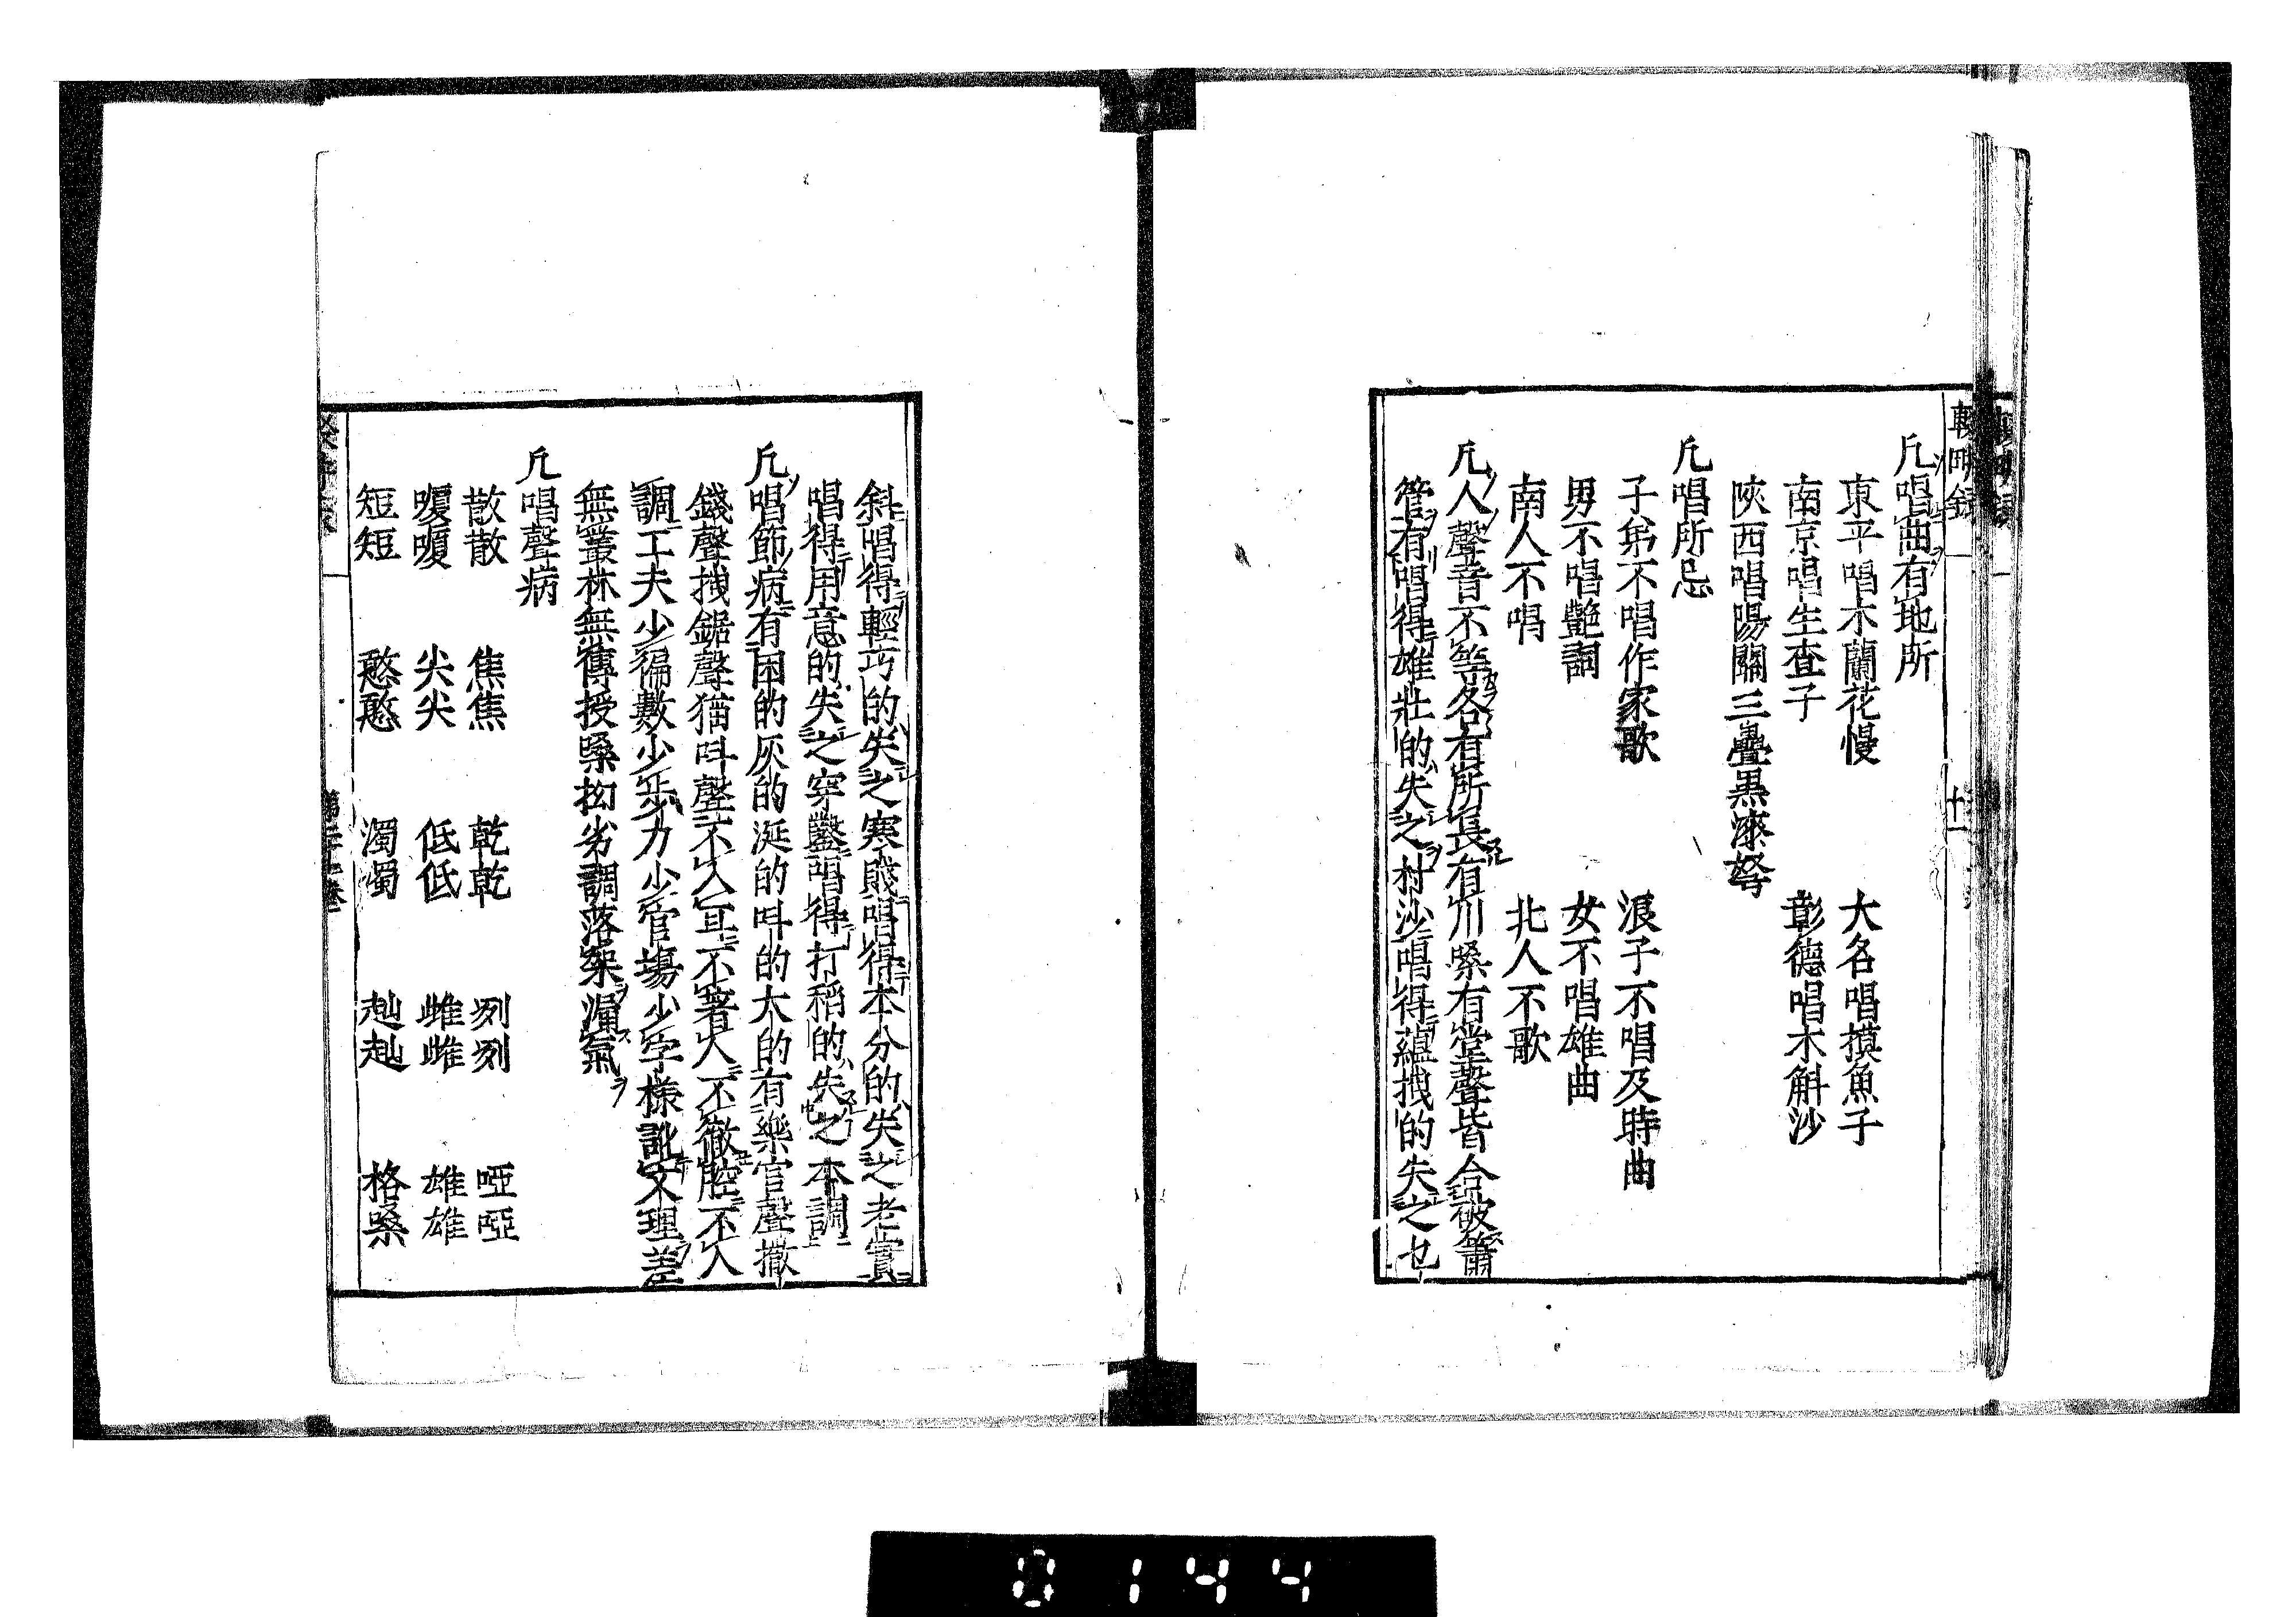 輟畊録
十一
凡唱曲有地所
東平唱木蘭花慢 大名唱摸魚子
南京唱生査子 彰德唱木斛沙
陝西唱陽關三疊黒漆弩
凡唱所忌
子弟不唱作家歌 浪子不唱及時曲
男不唱艶詞 女不唱雄曲
南人不唱 北人不歌
凡人聲音不等各有所長有川嗓有堂聲皆合破簫
管有唱得雄壯的失之村沙唱得蘊拽的失之乜
斜唱得輕巧的失之寒賤唱得本分的失之老實
唱得用意的失之穿鑿唱得打稻的失之本調
凡唱節病有困的灰的涎的呌的大的有樂官聲撒
錢聲拽鋸聲猫呌聲不入耳不著人不徹腔不入
調工夫少徧數少步力少官塲少字樣訛文理差
無叢林無傳授嗓拗劣調落架漏氣
凡唱聲病
散散 焦焦 乾乾 冽冽 啞啞
嗄嗄 尖尖 低低 雌雌 雄雄
短短 憨憨 濁濁 赸赸 格嗓
0144